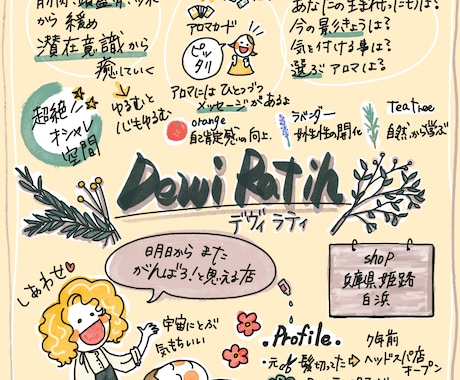 から緩め
潜在意識から
癒していく
超絶
オシャレ
空間
ゆるむと
心もゆるむ
アロマカード
ピッタリ
アロマにはひとつづつ
メッセージがあるよ
orange
自己肯定感の向上.
ラベンダー
女性性の開化
Tea tree
自然から学ぶ
今の影きょうは?
気を付ける事は?
選ぶアロマは?
Dewi Ratih
デヴィ ラティ
しあわせ
明日から また
がんばろ!と思える店
宇宙にとぶ
気もちいい
shop
兵庫県姫路
白浜
.Profile.
7年前
髪切ってた→ヘッドスパ店
オープン